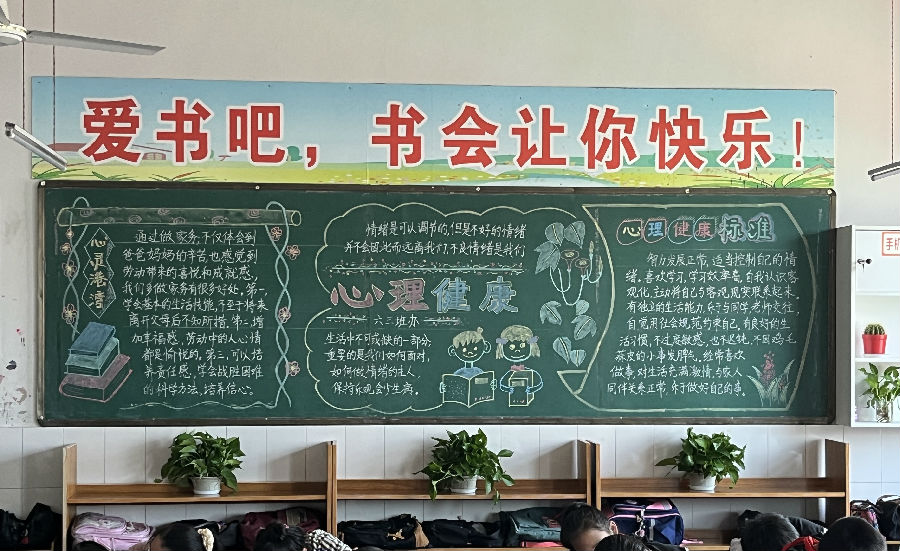 爱书吧，书会让你快乐！
心灵港湾
通过做家务,不仅体会到
爸爸妈妈的辛苦也感觉到
劳动带来的喜悦和成就感,
我们多做家务有很多好处。第一,
学会基本的生活技能,不至于将来
离开父母后不知所措。第二,增
加幸福感,劳动中的人心情
都是愉悦的。第三,可以培
养责任感,学会战胜困难
的科学方法,培养信心。
情绪是可以调节的,但是不好的情绪
并不会因此而远离我们,不良情绪是我们
心理健康
六三班办
生活中不可或缺的一部分,
重要的是我们如何面对,
如何做情绪的主人,
保持乐观会少生病。
心理健康标准
智力发展正常,适当控制自己的情
绪。喜欢学习,学习效率高,自我认识客
观化,主动将自己与客观现实联系起来,
有独立的生活能力,乐于与同学、老师交往,
自觉用社会规范约束自己,有良好的生
活习惯,不过度敏感,也不迟钝,不因鸡毛
蒜皮的小事发脾气,经常喜欢
做事,对生活充满激情,与家人
同伴关系正常,乐于做好自己的事。
手机